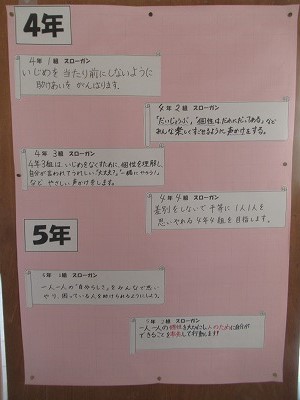 4年
4年 1組 スローガン
いじめを 当たり前にしないように
助けあいを がんばります。
4年 2組 スローガン
「だいじょうぶ」「個性はだれにだってある」など
みんな楽しくすごせるように声かけをする。
4年 3組 スローガン
4年3組は いじめをなくすために、個性を理解し
自分が言われてうれしい「大丈夫?」「一緒にやろう」
など やさしい声かけをします。
4年 4組 スローガン
差別をしないで 平等に 1人1人を
思いやれる 4年4組 を目指します。
5年
5年 1組 スローガン
一人一人の「自分らしさ」をみんなで思い
やり、困っている人を助けられるようにしよう。
5年 2組 スローガン
一人一人の個性を大切にし人のために自分が
できることを考えて行動します!